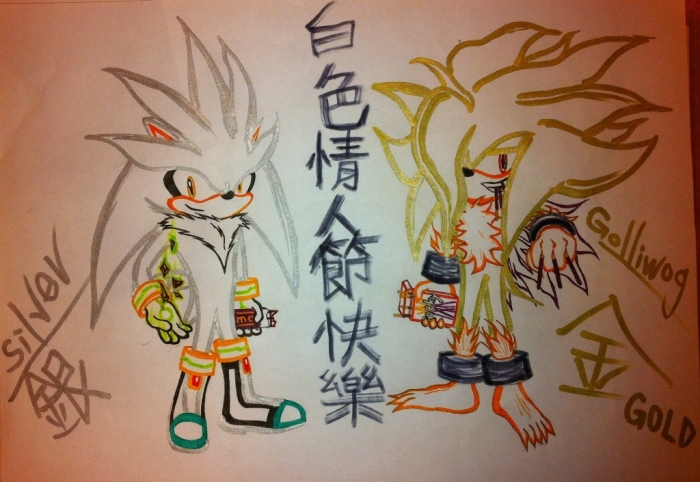 白色情人節快樂
Silver
銀
mc
Golliwog
金
GOLD